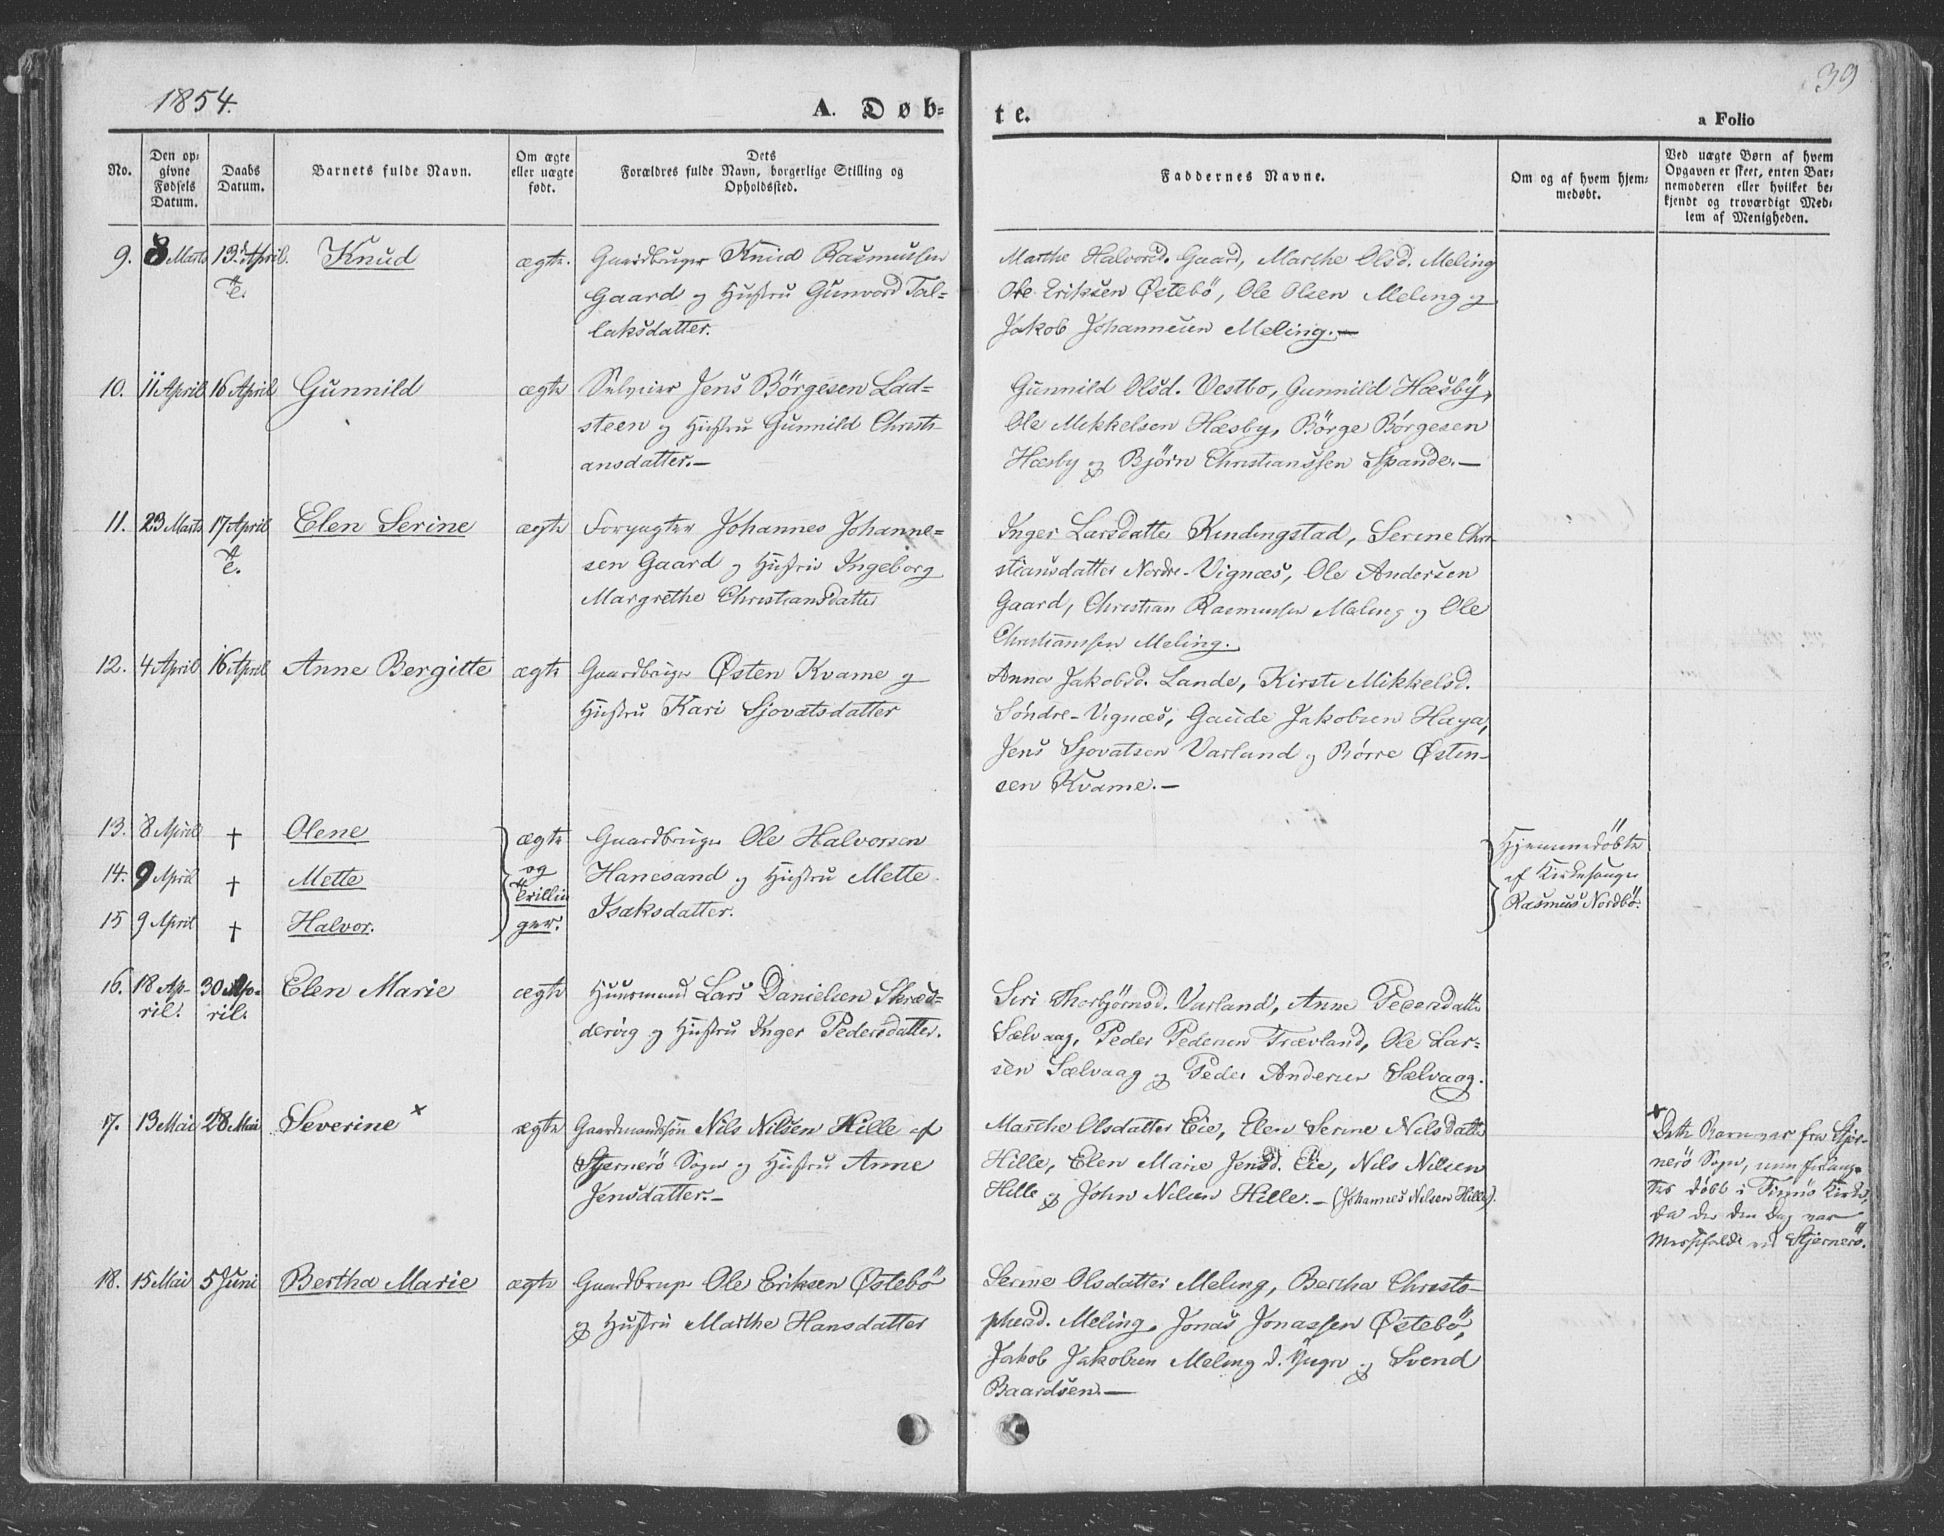 1854.
39
A. Døb-
te.
a Folio
No.
Den op-
givne
Fødsels
Datum.
Daabs
Datum.
Barnets fulde Navn.
Om ægte
eller uægte
født.
Dets
Forældres fulde Navn, borgerlige Stilling og
Opholdssted.
Faddernes Navne.
Om og af hvem hjem-
medøbt.
Ved uægte Børn af hvem
Opgaven er skeet, enten Bar-
nemoderen eller hvilket be-
kjendt og troværdigt Med-
lem af Menigheden.
9. 8 Marts 13. April. Knud ægte. Gaardbruger Knud Rasmussen
Gaard og Hustru Gunvord Tal-
laksdatter.
Marthe Halvorsd. Gaard, Marthe Olsd. Meling
Ole Eriksen Østebö, Ole Olsen Meling og
Jakob Johannesen Meling.—
10. 11 April 16 April Gunnild ægte Selveier Jens Börgesen Lad-
steen og Hustru Gunnild Christi-
ansdatter.—
Gunnild Olsd. Vestbo, Gunnild Hæsby,
Ole Mikkelsen Hæsby, Börge Börgesen
Hæsby og Björn Christianssen Spande.—
11. 23 Marts 17 April Elen Serine ægte Forpagter Johannes Johanne-
sen Gaard og Hustru Ingeborg
Margrethe Christiansdatter
Inger Larsdatter Kindingstad, Serine Chri-
stiansdatter Nordre-Vignæs, Ole Andersen
Gaard, Christian Rasmussen Meling og Ole
Christianssen Meling.
12. 4 April 16 April Anne Bergitte ægte Gaardbruger Østen Kvame og
Hustru Kari Sjovatsdatter
Anna Jakobsd. Lande, Kirsti Mikkelsd.
Söndre-Vignæs, Gaude Jakobsen Haga,
Jens Sjovatsen Varland og Börre Østen-
sen Kvame.—
13. 8 April † Olene
14. 9 April † Mette
15 9 April † Halvor.
ægte
og
Trillin
ger.
Gaardbruger Ole Halvorsen
Hanesand og Hustru Mette
Isaksdatter.
Hjemmedöbte
af Kirkesanger
Rasmus Nordbö.
16. 18 Ap-
ril.
30 Ap-
ril.
Elen Marie ægte Huusmand Lars Danielsen Skræd-
dervig og Hustru Inger Pedersdatter.
Siri Thorbjörnsd. Varland, Anne Pedersdatter
Sælvaag, Peder Pedersen Trævland, Ole Lar-
sen Sælvaag og Peder Andersen Sælvaag.
17. 13 Mai 28 Mai Severine × ægte Gaardmandssön Nils Nilsen Hille af
Stjernerö Sogn og Hustru Anne
Jensdatter.—
Marthe Olsdatter Eie, Elen Serine Nilsdatter
Hille, Elen Marie Jensd. Eie, Nils Nilsen
Hille og John Nilsen Hille.— (Johannes Nilsen Hille).
× Dette Barn var fra Stjer-
nerö Sogn, men forlang-
tes döbt i Finnö Kirke,
da der den Dag var
Messefald i Stjernerö.
18. 15 Mai 5 Juni Bertha Marie ægte Gaardbruger Ole Eriksen Østebö
og Hustru Marthe Hansdatter
Serine Olsdatter Meling, Bertha Christo-
phersd. Meling, Jonas Jonassen Østebö,
Jakob Jakobsen Meling d. Yngre og Svend
Baardsen.—